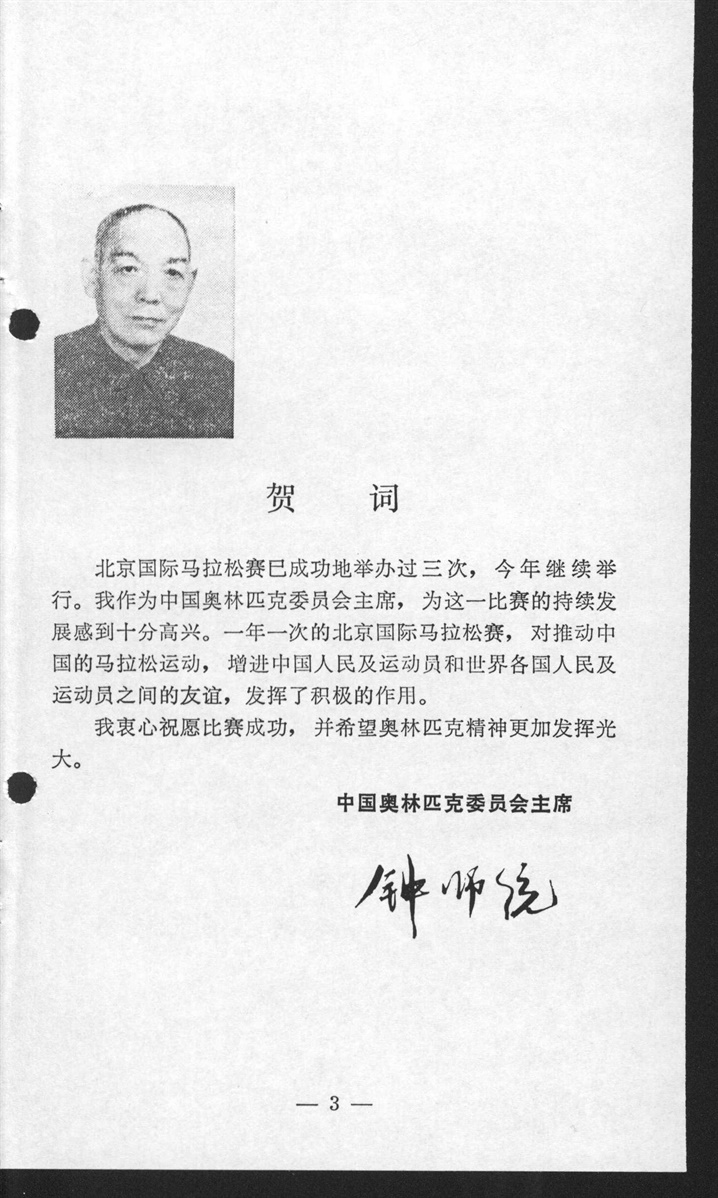 贺 词
北京国际马拉松赛已成功地举办过三次，今年继续举
行。我作为中国奥林匹克委员会主席，为这一比赛的持续发
展感到十分高兴。一年一次的北京国际马拉松赛，对推动中
国的马拉松运动，增进中国人民及运动员和世界各国人民及
运动员之间的友谊，发挥了积极的作用。
我衷心祝愿比赛成功，并希望奥林匹克精神更加发挥光
大。
中国奥林匹克委员会主席
钟师统
— 3 —